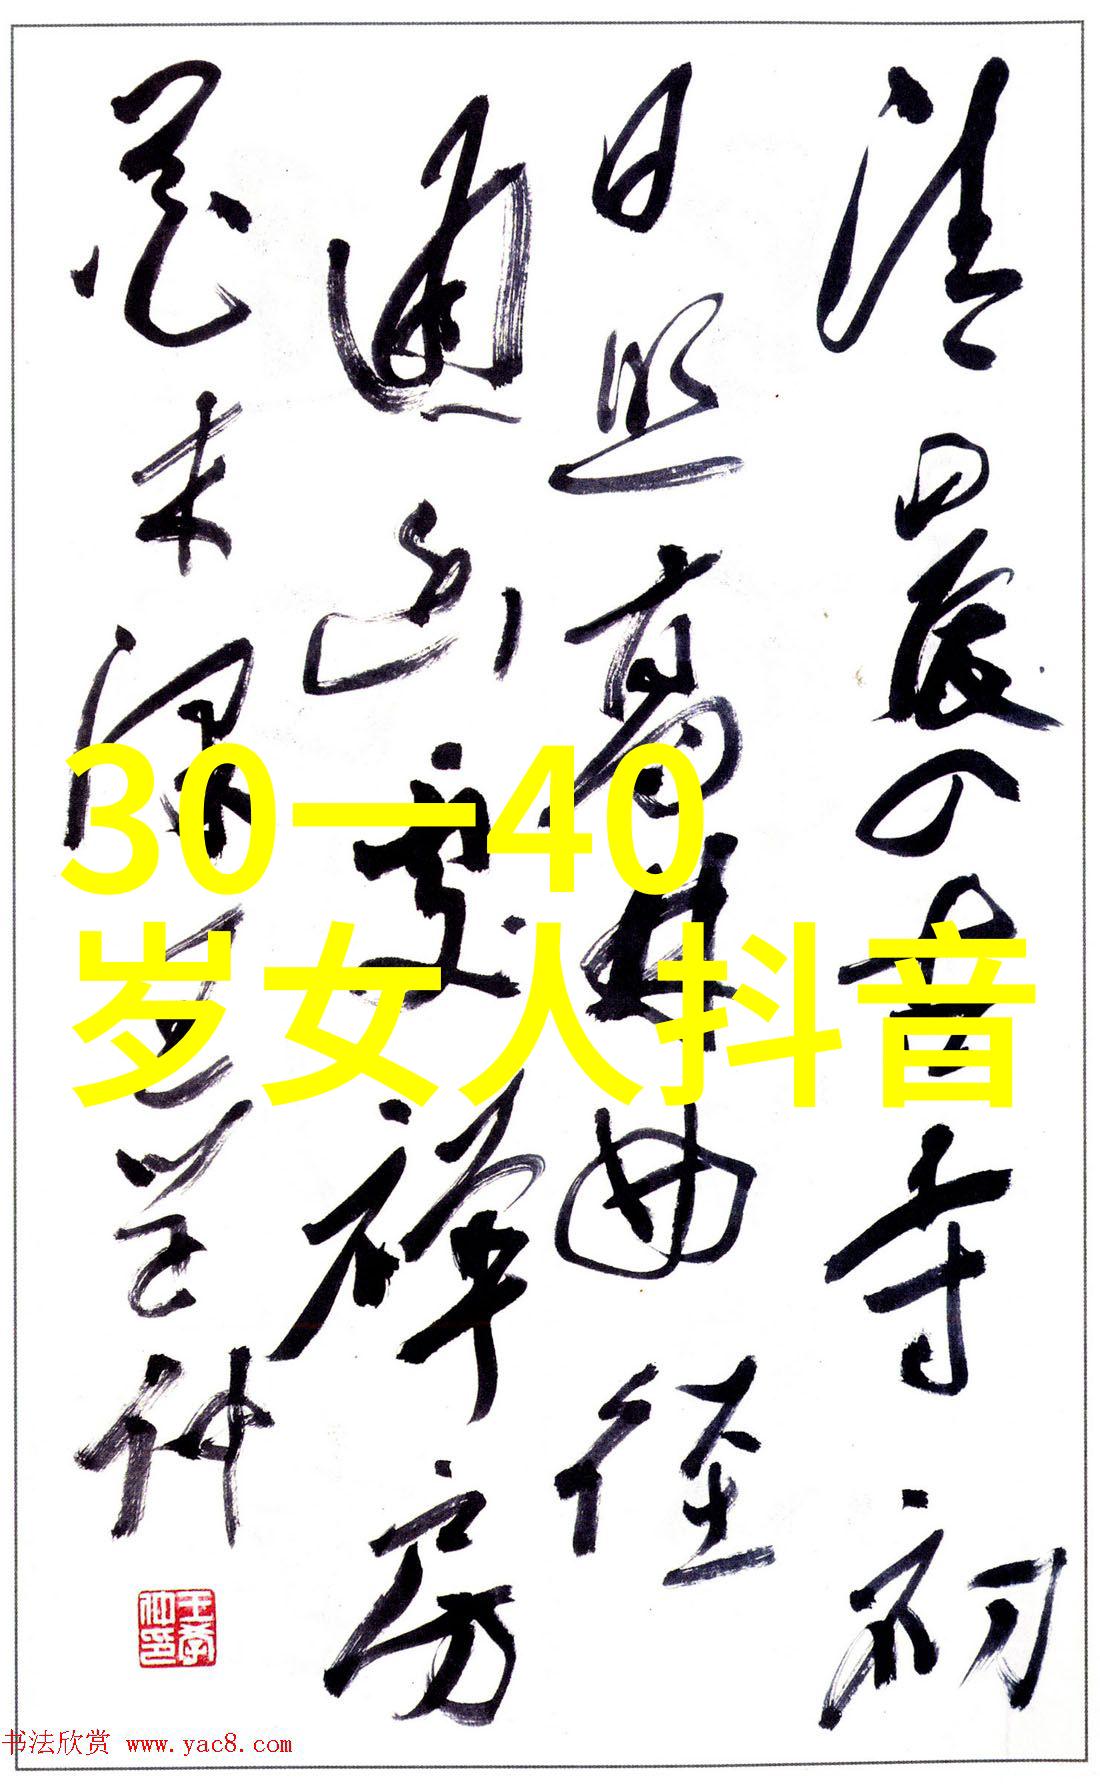 清晨入古寺初
日照高林曲径
通幽处禅房
花木深
王学仲
30一40
岁女人抖音
书法欣赏 www.yac8.com